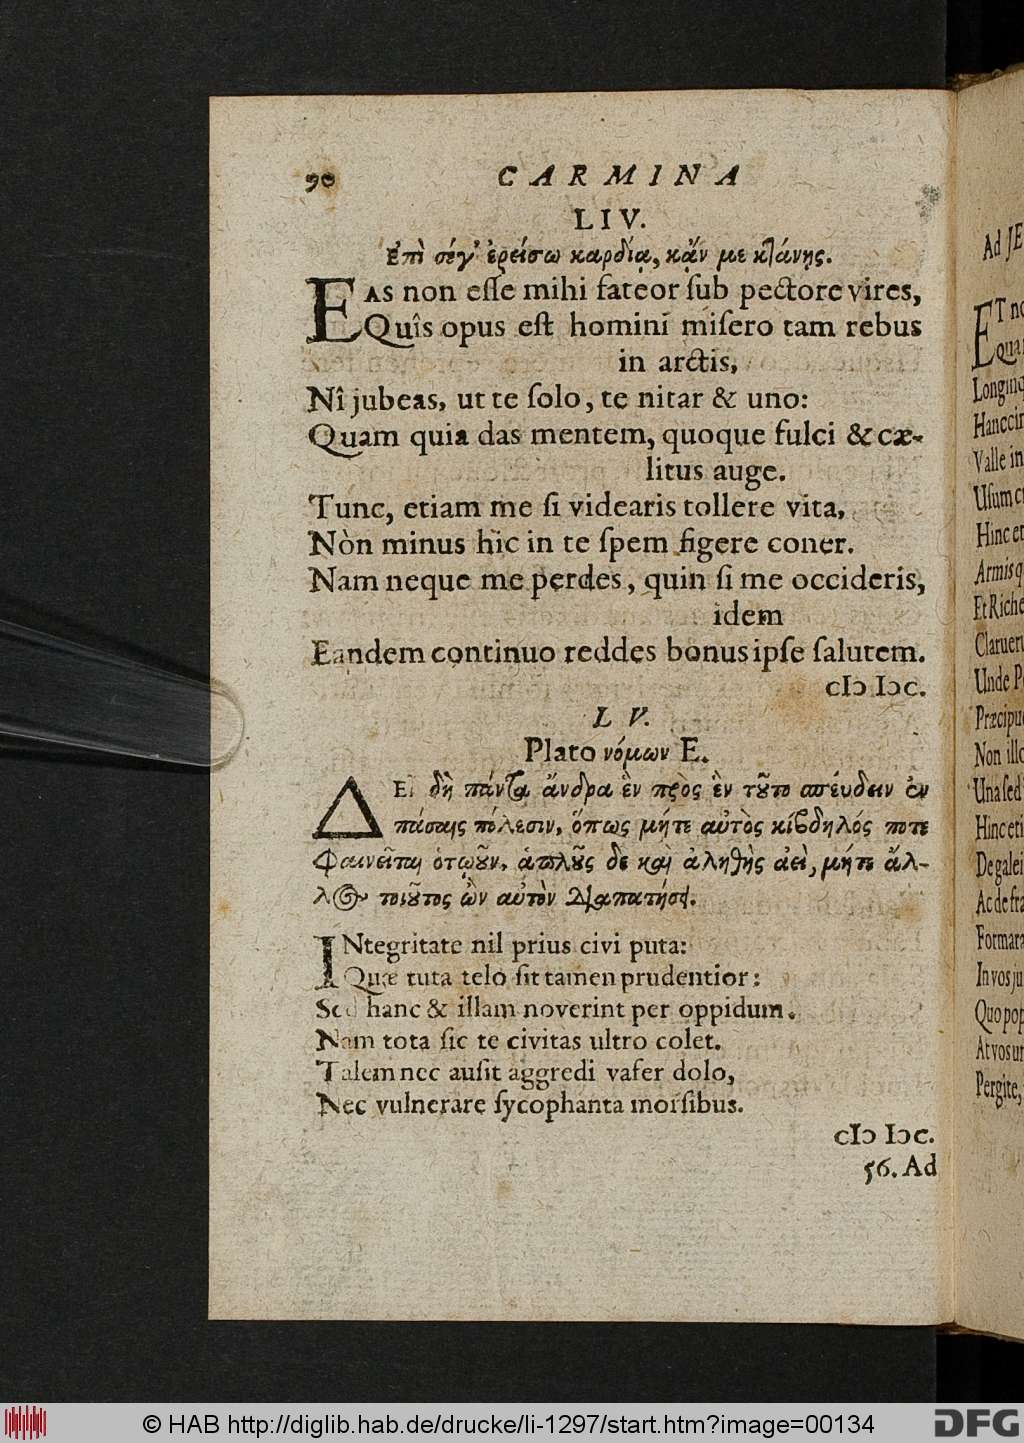 90 CARMINA
LIV.
Ἐπὶ σέγ' ἐρείσω καρδίᾳ, κᾄν με κτάνῃς.
EAS non eſſe mihi fateor ſub pectore vires,
Quîs opus eſt homini miſero tam rebus
in arctis,
Nî jubeas, ut te ſolo, te nitar & uno:
Quam quia das mentem, quoque fulci & cæ-
litus auge.
Tunc, etiam me ſi videaris tollere vita,
Nòn minus hîc in te ſpem figere coner.
Nam neque me perdes, quin ſi me occideris,
idem
Eandem continuo reddes bonus ipſe ſalutem.
cIↄ Iↄc.
L V.
Plato νόμων E.
ΔΕΙ δὴ πάντα ἄνδρα ἓν πρὸς ἓν τοῦτο σπεύδειν ἐν
πάσαις πόλεσιν, ὅπως μήτε αὐτὸς κίβδηλός ποτε
φαινεῖται ὁτῳοῦν, ἁπλοῦς δὲ καὶ ἀληθὴς ἀεὶ, μήτε ἄλ-
λος τοιοῦτος ὢν αὐτὸν διαπατήσει.
INtegritate nil prius civi puta:
Quæ tuta telo ſit tamen prudentior:
Sed hanc & illam noverint per oppidum.
Nam tota ſic te civitas ultro colet.
Talem nec auſit aggredi vafer dolo,
Nec vulnerare ſycophanta morſibus.
cIↄ Iↄc.
56. Ad
Ad JE
ET no
Longinq
Valle in
Uſum
Hinc et
Armis q
Et Riche
Claruer
Unde P
Præcipu
Non illo
Una ſed
Hinc eti
De galei
Ac de fra
Formara
In vos ju
Quo pop
At vos ut
Pergite,
© HAB http://diglib.hab.de/drucke/li-1297/start.htm?image=00134
DFG